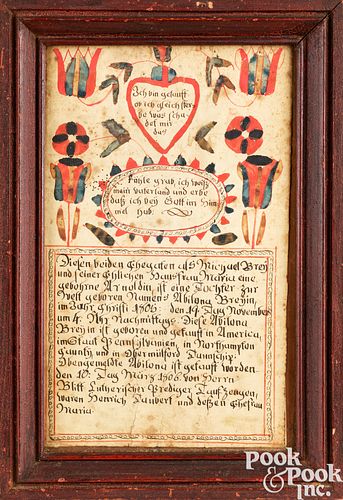 Ich bin getauft
ob ich gleich ster-
be was scha-
det mir
das
kühle grab, ich weiß
mein vaterland und erbe
daß ich bey Gott im Him-
mel hab.
Diesen beiden Ehegatten als Michael Brey
und seiner Ehlichen Hausfrau Maria eine
geborne Arnoldin, ist eine Tochter zur
Welt geboren Namens Abilona Breyin,
im Jahr Christi 1805 den 14 Dag November
um 4 Uhr Nachmittags Diese Abilona
Breyin ist geboren und getauft in America,
im Staat Pennsilvanien, in Northampton
Caunty und in Obermilford Daunschip.
Obengemeldte Abilona ist getauft worden
den 10 Dag März 1806 von Herrn
Blitt Lutherischer Prediger Taufzeugen,
waren Henrich Daubert und deßen Ehefrau
Maria.
Pook
& Pook
Inc.